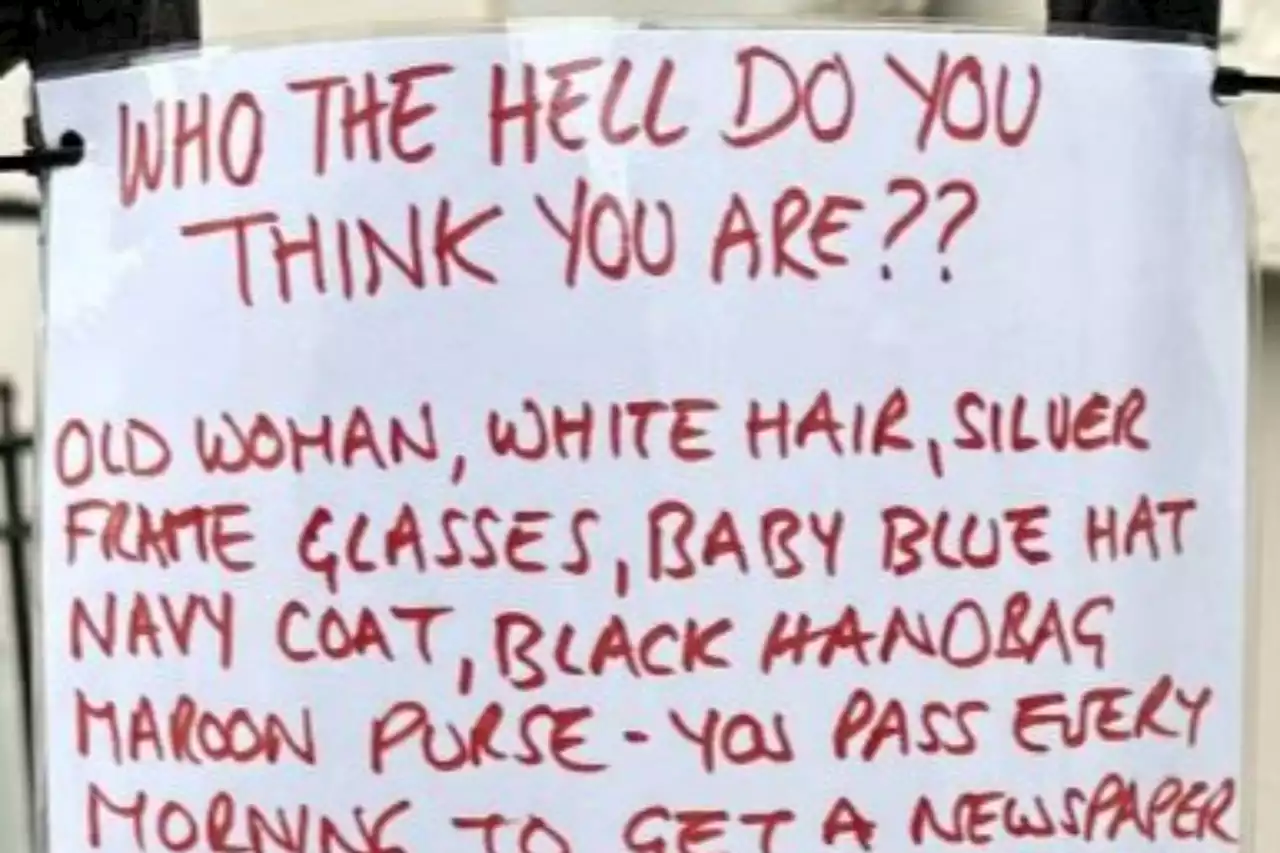 WHO THE HELL DO YOU
THINK YOU ARE??
OLD WOMAN, WHITE HAIR, SILVER
FRAME GLASSES, BABY BLUE HAT
NAVY COAT, BLACK HANDBAG
MAROON PURSE - YOU PASS EVERY
MORNING TO GET A NEWSPAPER